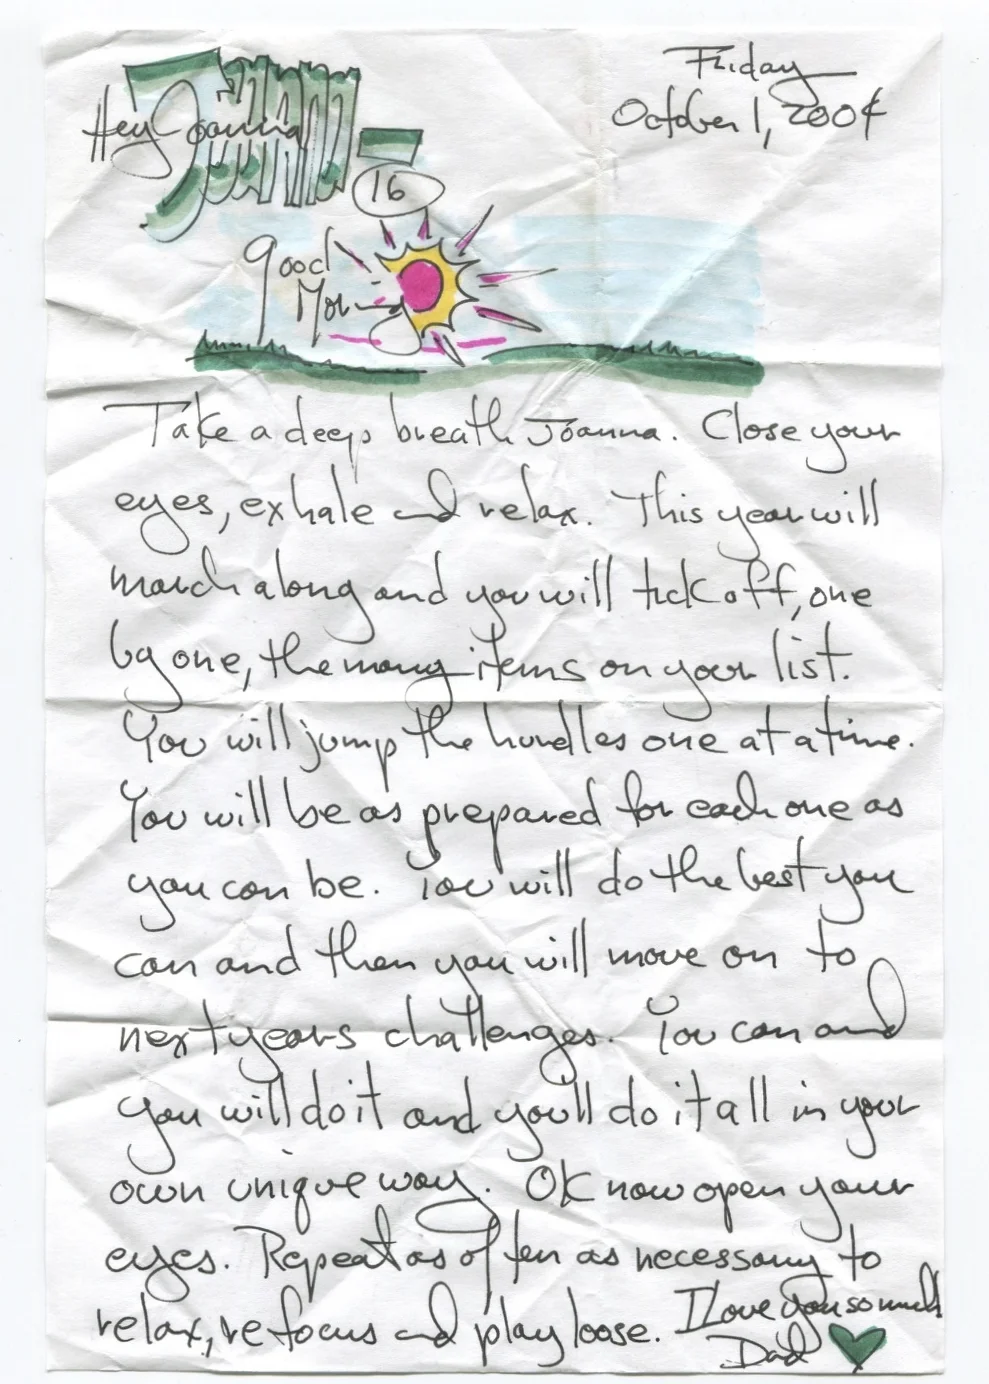 Friday
October 1, 2004
Hey Joanna
16
Good
Morning
Take a deep breath Joanna. Close your
eyes, exhale and relax. This year will
march along and you will tick off, one
by one, the many items on your list.
You will jump the hurdles one at a time.
You will be as prepared for each one as
you can be. You will do the best you
can and then you will move on to
next years challenges. You can and
you will do it and you'll do it all in your
own unique way. OK now open your
eyes. Repeat as often as necessary to
relax, refocus and play loose. I Love you so much
Dad